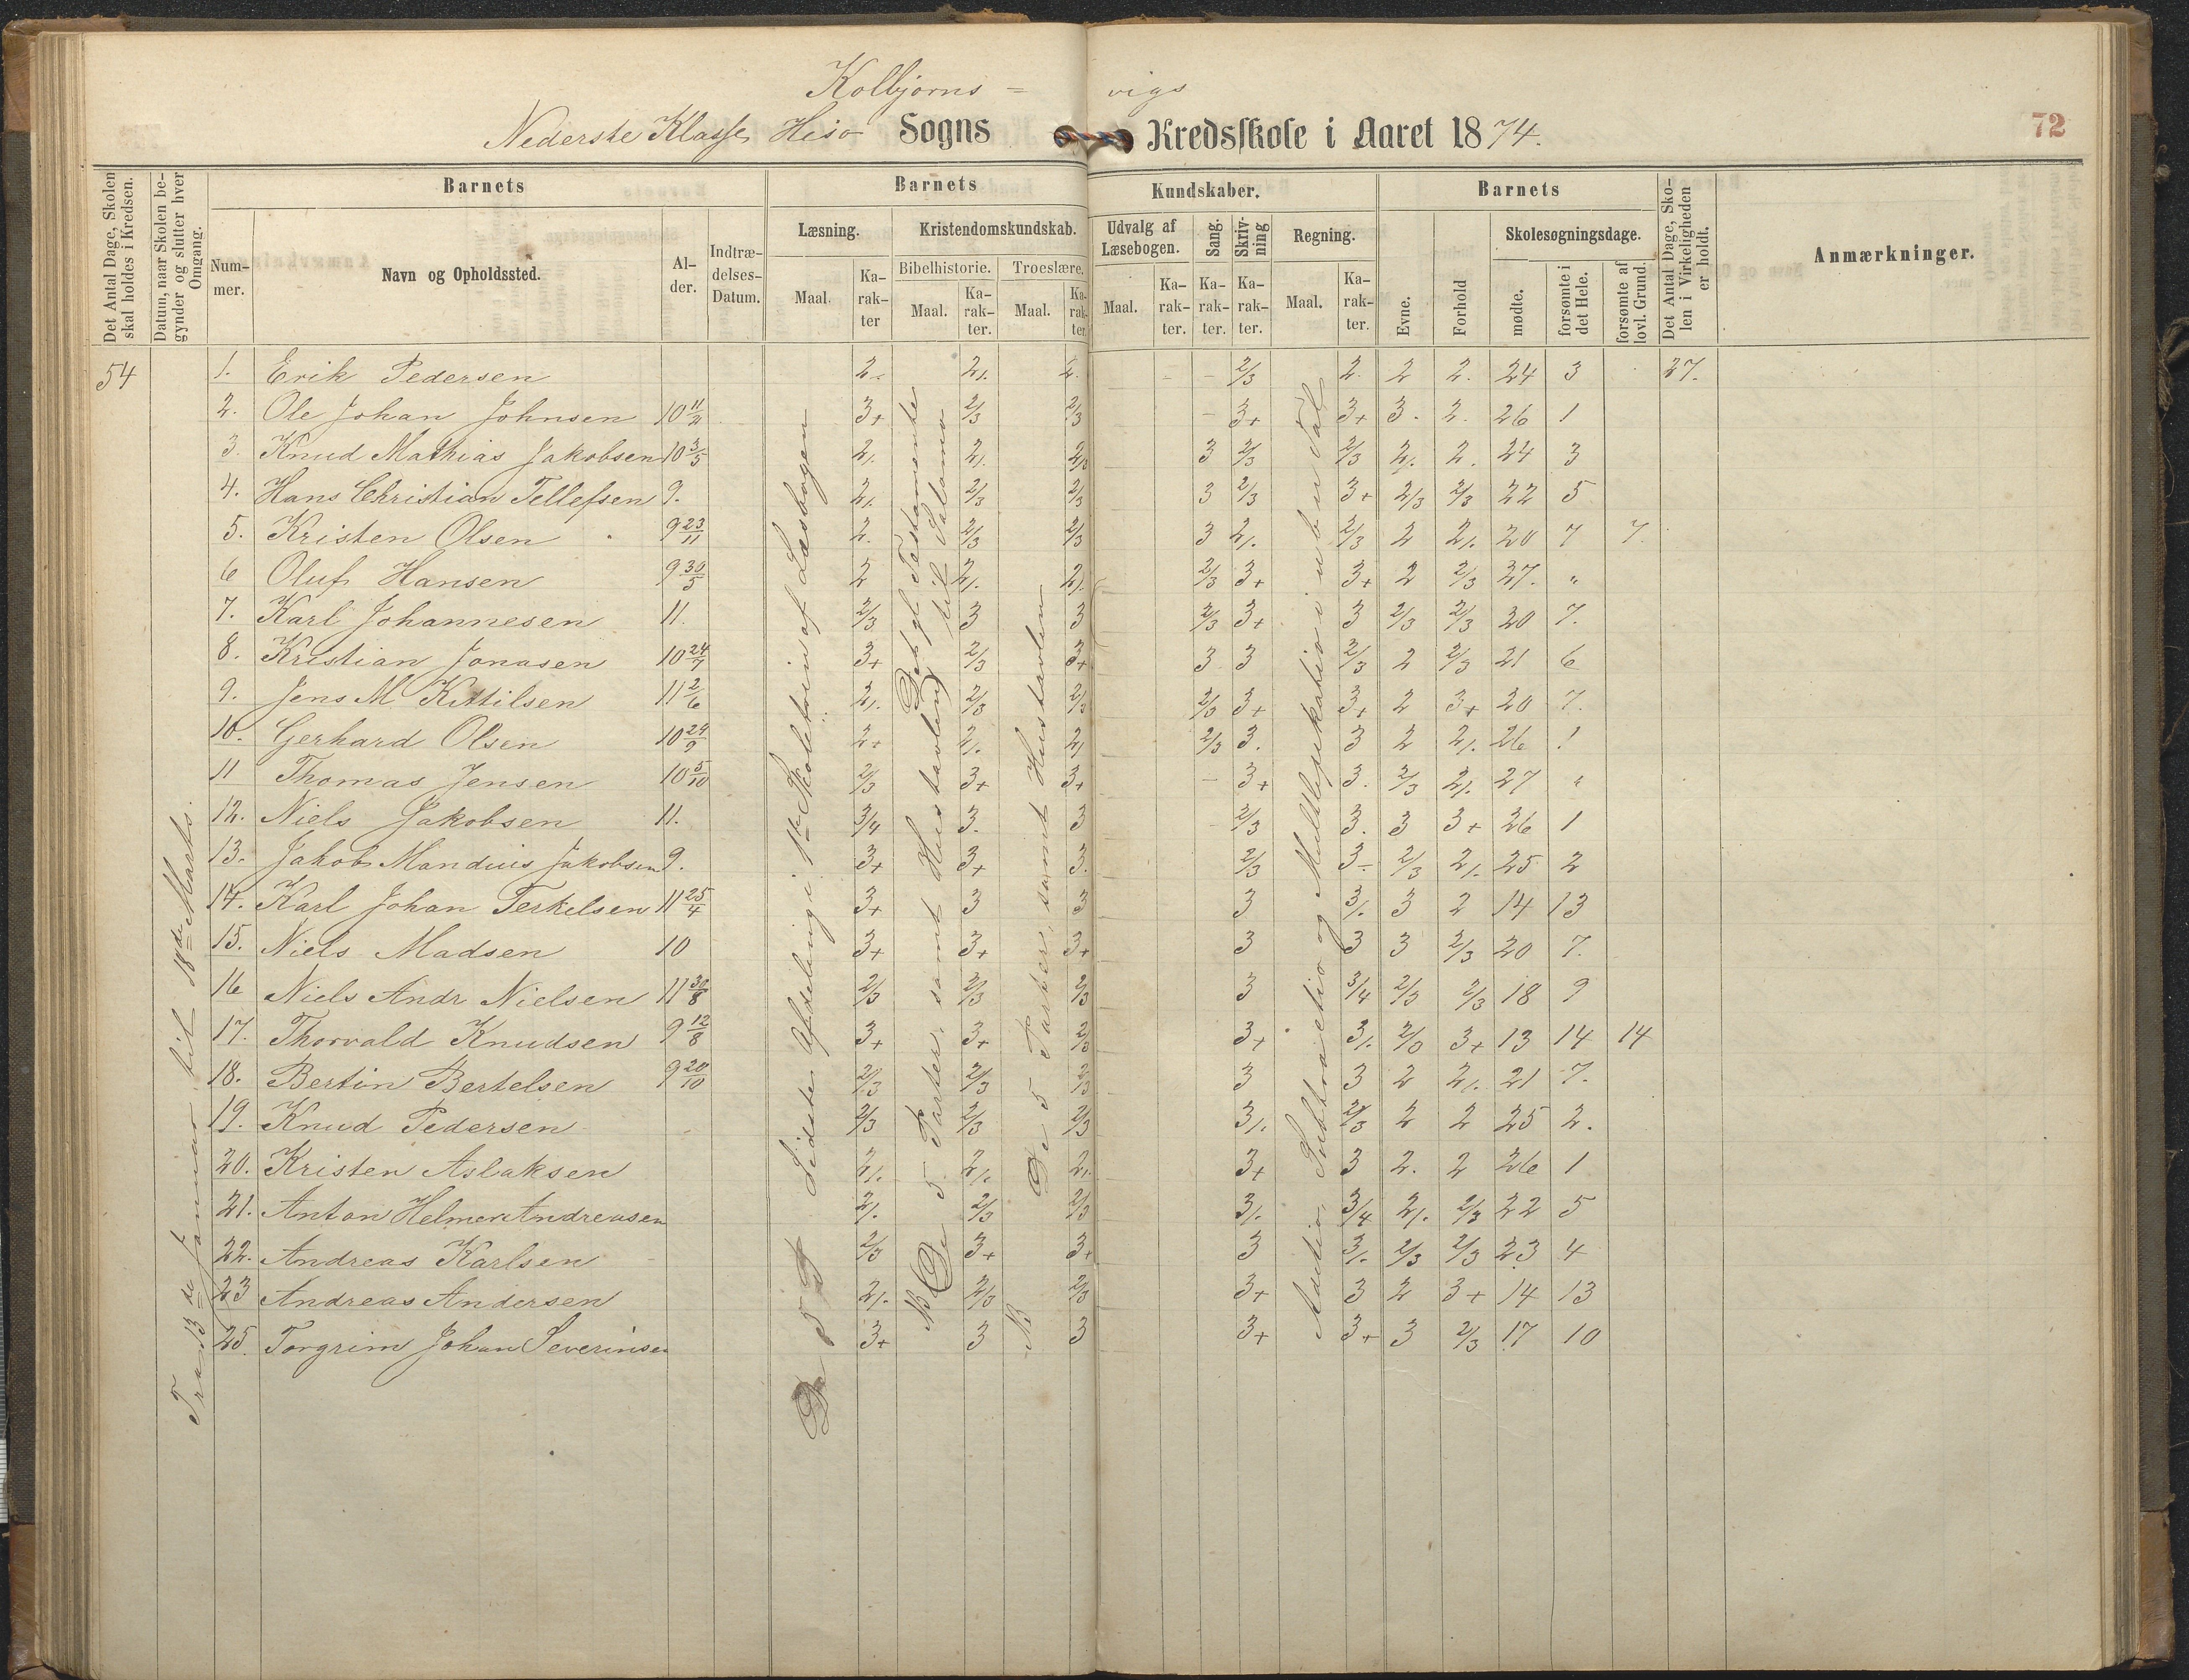 Kolbjørns = vigs
Nederste Klasse, Hisø Sogns Kredsskole i Aaret 1874.
72
Det Antal Dage, Skolen skal holdes i Kredsen.
Datum, naar Skolen begynder og slutter hver Omgang.
Barnets
Num-
mer.
Navn og Opholdssted.
Al-
der.
Indtræ-
delses-
Datum.
Barnets Kundskaber.
Læsning.
Maal.
Ka-
rak-
ter
Kristendomskundskab.
Bibelhistorie.
Maal.
Ka-
rak-
ter.
Troeslære.
Maal.
Ka-
rak-
ter.
Udvalg af
Læsebogen.
Maal.
Ka-
rak-
ter.
Sang.
Ka-
rak-
ter.
Skriv-
ning
Ka-
rak-
ter.
Regning.
Maal.
Ka-
rak-
ter.
Barnets
Evne.
Forhold
Skolesøgningsdage.
mødte.
forsømte i det Hele.
forsømte af lovl. Grund.
Det Antal Dage, Sko-
len i Virkeligheden
er holdt.
Anmærkninger.
54
Fra 13de Januar til 18de Marts.
1. Erik Pedersen 2. 2/. 2. 2/3 2. 2 2. 24 3 27.
2. Ole Johan Johnsen 10 11/2 3+ 2/3 2/3 3+ 3+ 3. 2. 26 1
3. Knud Mathias Jakobsen 10 3/5 2/. 2/. 2/3 3 2/3 2/3 2/. 2. 24 3
4. Hans Christian Tellefsen 9. 2/. 2/3 2/3 3 2/3 3+ 2/3 2/3 22 5
5. Kristen Olsen 9 23/11 2. 2/3 2/3 3 2/. 2/3 2 2/. 20 7 7.
6 Oluf Hansen 9 30/5 2 2/. 2/. 2/3 3+ 3+ 2 2/3 27. "
7. Karl Johannesen 11. 2/3 3 3 2/3 3+ 3 2/3 2/3 20 7.
8. Kristian Jonasen 10 24/7 3+ 2/3 3+ 3 3 2/3 2 2/3 21 6
9. Jens M Kittilsen 11 2/6 2/. 2/3 2/3 2/3 3+ 3+ 2 3+ 20 7.
10. Gerhard Olsen 10 24/9 2+ 2/. 2/ 2/3 3. 3 2 2/. 26 1
11 Thomas Jensen 10 5/10 2/3 3+ 3+ 3+ 3. 2/3 2/. 27 "
12. Niels Jakobsen 11. 3/4 3. 3 2/3 3. 3 3+ 26 1
13. Jakob Mandius Jakobsen 9. 3+ 3+ 3. 2/3 3- 2/3 2/. 25 2
14. Karl Johan Terkelsen 11 25/4 3+ 3 3 3 3/. 3 2 14 13
15. Niels Madsen 10 3+ 3+ 3+ 3 3 3 2/3 20 7.
16 Niels Andr Nielsen 11 30/8 2/3 2/3 2/3 3 3/4 2/3 2/3 18 9
17. Thorvald Knudsen 9 12/8 3+ 3+ 2/3 3+ 3/. 2/3 3+ 13 14 14
18. Bertin Bertelsen 9 20/10 2/3 2/3 2/3 3 3 2 2/. 21 7.
19. Knud Pedersen 2/3 2/3 2/3 3/. 2/3 2 2 25 2.
20. Kristen Aslaksen 2/. 2/. 2/. 3+ 3 2. 2 26 1
21. Anton Helmer Andreasen 2/. 2/3 2/3 3/. 3/4 2/. 2/3 22 5
22. Andreas Karlsen 2/3 3+ 3+ 3 3/. 2/3 2/3 23 4
23 Andreas Andersen 2/. 2/3 2/3 3+ 3 2 3+ 14 13
25. Torgrim Johan Severinsen 3+ 3 3 3+ 3+ 3 2/3 17 10
Sidste Afdeling i 1ste Skoletrin af Læsebogen
NB De 5 Parter, samt Hustavlen
Det gl. Testamente til Salomo
NB De 5 Parter, samt Hustavlen
Addition, Subtraction og Multiplikation i ubn Tal